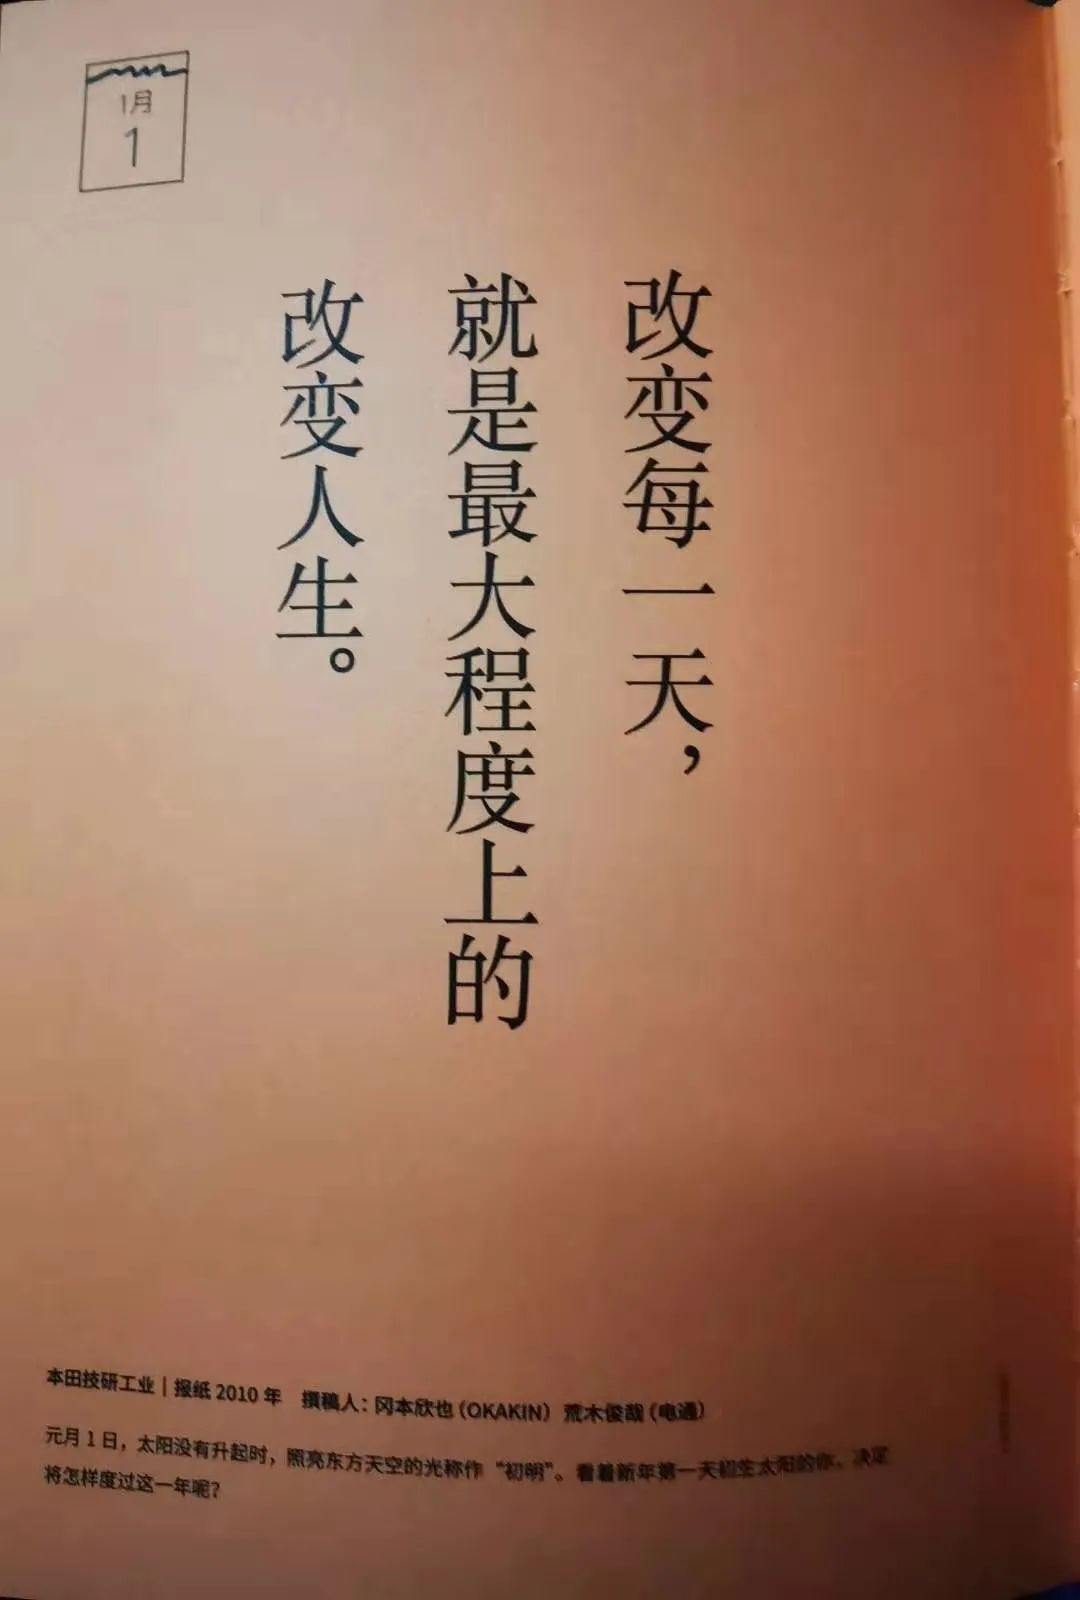 1月
1
改变每一天，
就是最大程度上的
改变人生。
本田技研工业｜报纸 2010 年 撰稿人：冈本欣也（OKAKIN） 荒木俊哉（电通）
元月 1 日，太阳没有升起时，照亮东方天空的光称作“初明”。看着新年第一天初生太阳的你，决定
将怎样度过这一年呢？